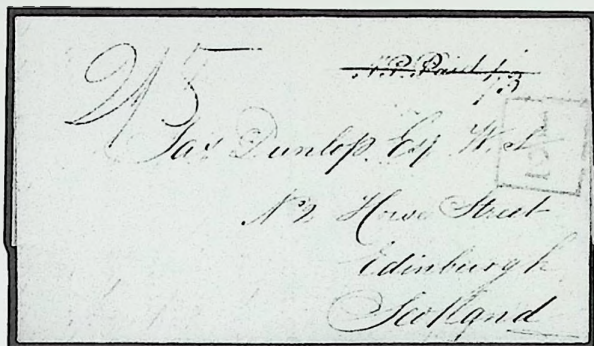 2/5
P. Paid
1/3
Jas Dunlop Esq W.S
No 2 Howe Street
Edinburgh
Scotland